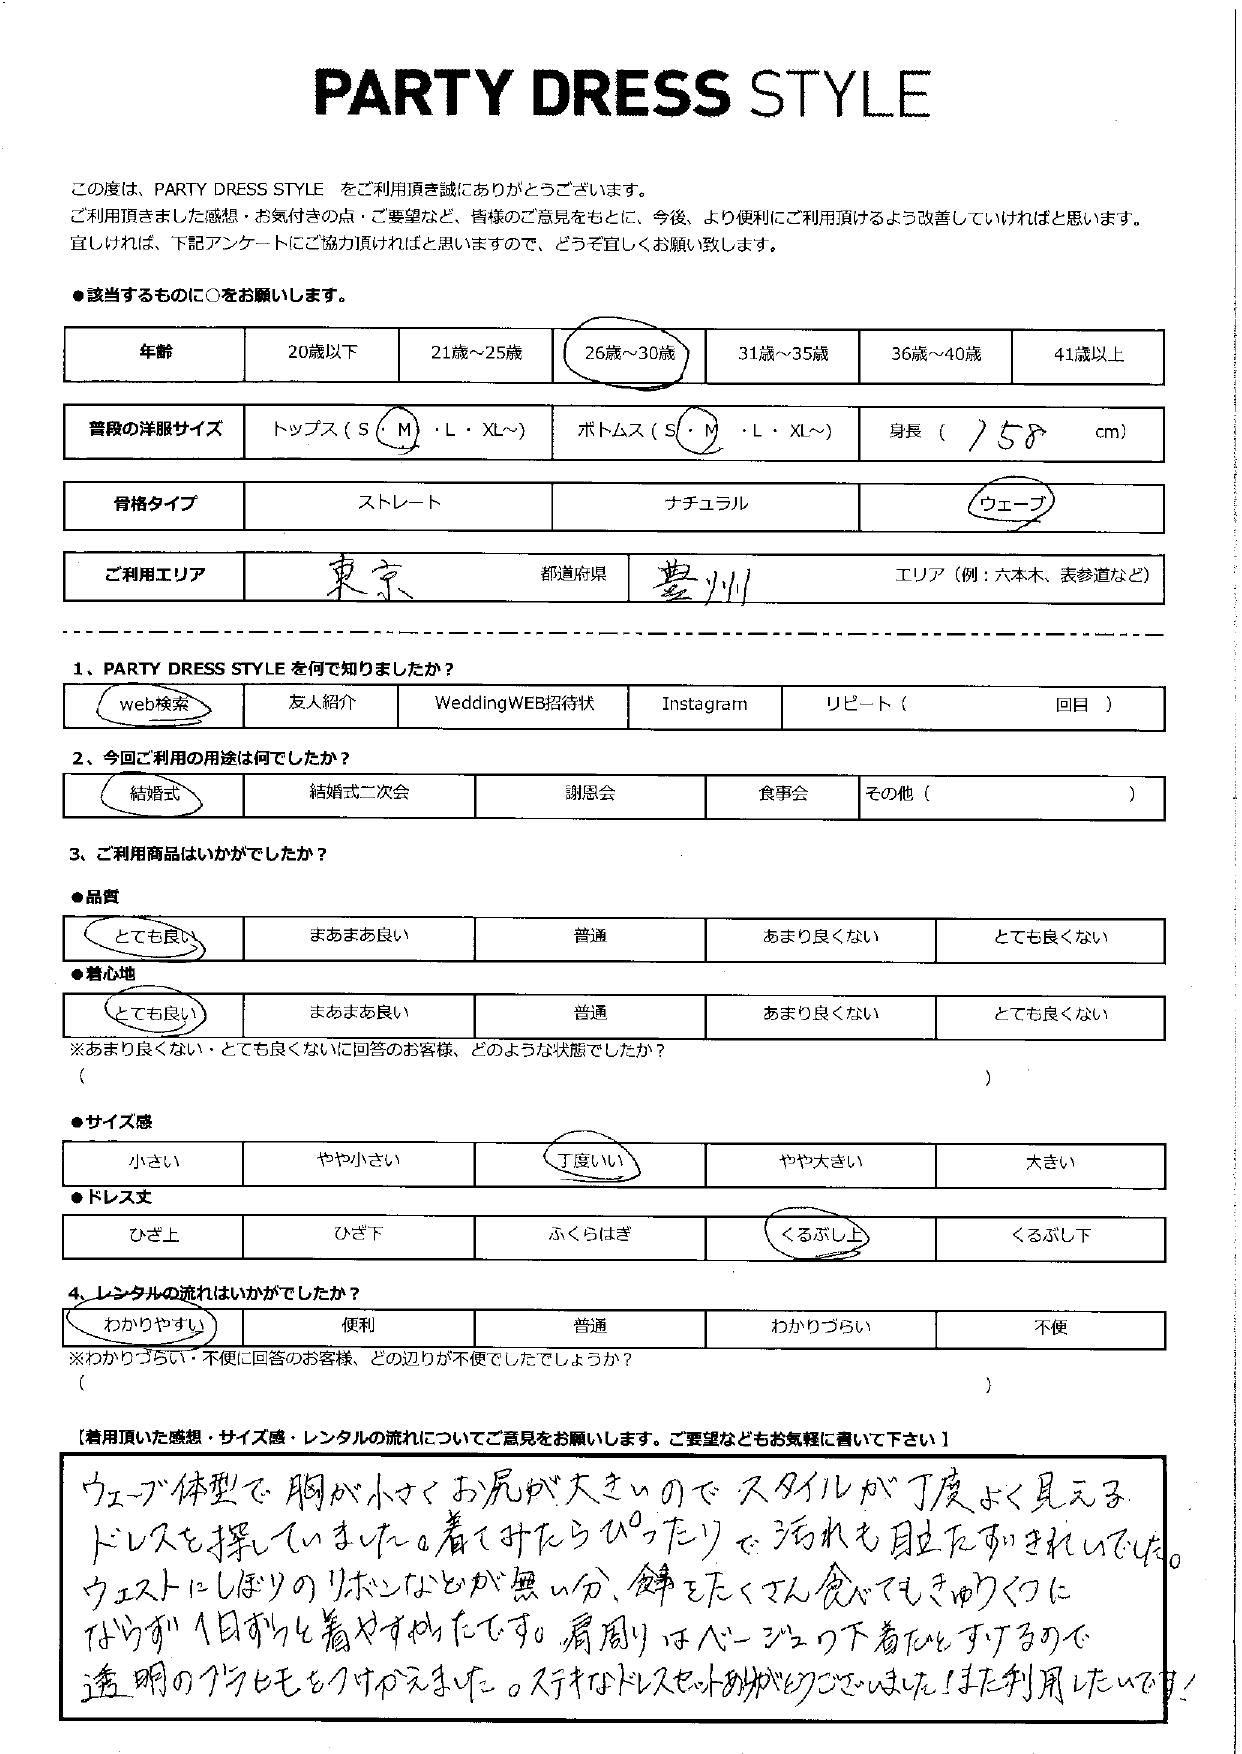 PARTY DRESS STYLE
この度は、PARTY DRESS STYLE をご利用頂き誠にありがとうございます。
ご利用頂きました感想・お気付きの点・ご要望など、皆様のご意見をもとに、今後、より便利にご利用頂けるよう改善していければと思います。
宜しければ、下記アンケートにご協力頂ければと思いますので、どうぞ宜しくお願い致します。
●該当するものに○をお願いします。
年齢 20歳以下 21歳～25歳 26歳～30歳 31歳～35歳 36歳～40歳 41歳以上
普段の洋服サイズ トップス ( S ・ M ・ L ・ XL～) ボトムス ( S ・ M ・ L ・ XL～) 身長 ( 158 cm)
骨格タイプ ストレート ナチュラル ウェーブ
ご利用エリア 東京 都道府県 豊州 エリア（例：六本木、表参道など）
1、PARTY DRESS STYLE を何で知りましたか？
web検索 友人紹介 WeddingWEB招待状 Instagram リピート（ 回目 ）
2、今回ご利用の用途は何でしたか？
結婚式 結婚式二次会 謝恩会 食事会 その他（ ）
3、ご利用商品はいかがでしたか？
●品質
とても良い まあまあ良い 普通 あまり良くない とても良くない
●着心地
とても良い まあまあ良い 普通 あまり良くない とても良くない
※あまり良くない・とても良くないに回答のお客様、どのような状態でしたか？
（ ）
●サイズ感
小さい やや小さい 丁度いい やや大きい 大きい
●ドレス丈
ひざ上 ひざ下 ふくらはぎ くるぶし上 くるぶし下
4、レンタルの流れはいかがでしたか？
わかりやすい 便利 普通 わかりづらい 不便
※わかりづらい・不便に回答のお客様、どの辺りが不便でしたでしょうか？
（ ）
【着用頂いた感想・サイズ感・レンタルの流れについてご意見をお願いします。ご要望などもお気軽に書いて下さい】
ウェーブ体型で胸が小さくお尻が大きいのでスタイルが丁度よく見える
ドレスを探していました。着てみたらぴったりで汚れも目立たずきれいでした。
ウェストにしぼりのリボンなどが無い分、食事をたくさん食べてもきゅうくつに
ならず1日ずっと着やすかったです。肩周りはベージュの下着だとすけるので
透明のブラヒモをつけかえました。ステキなドレスセットありがとうございました！また利用したいです！